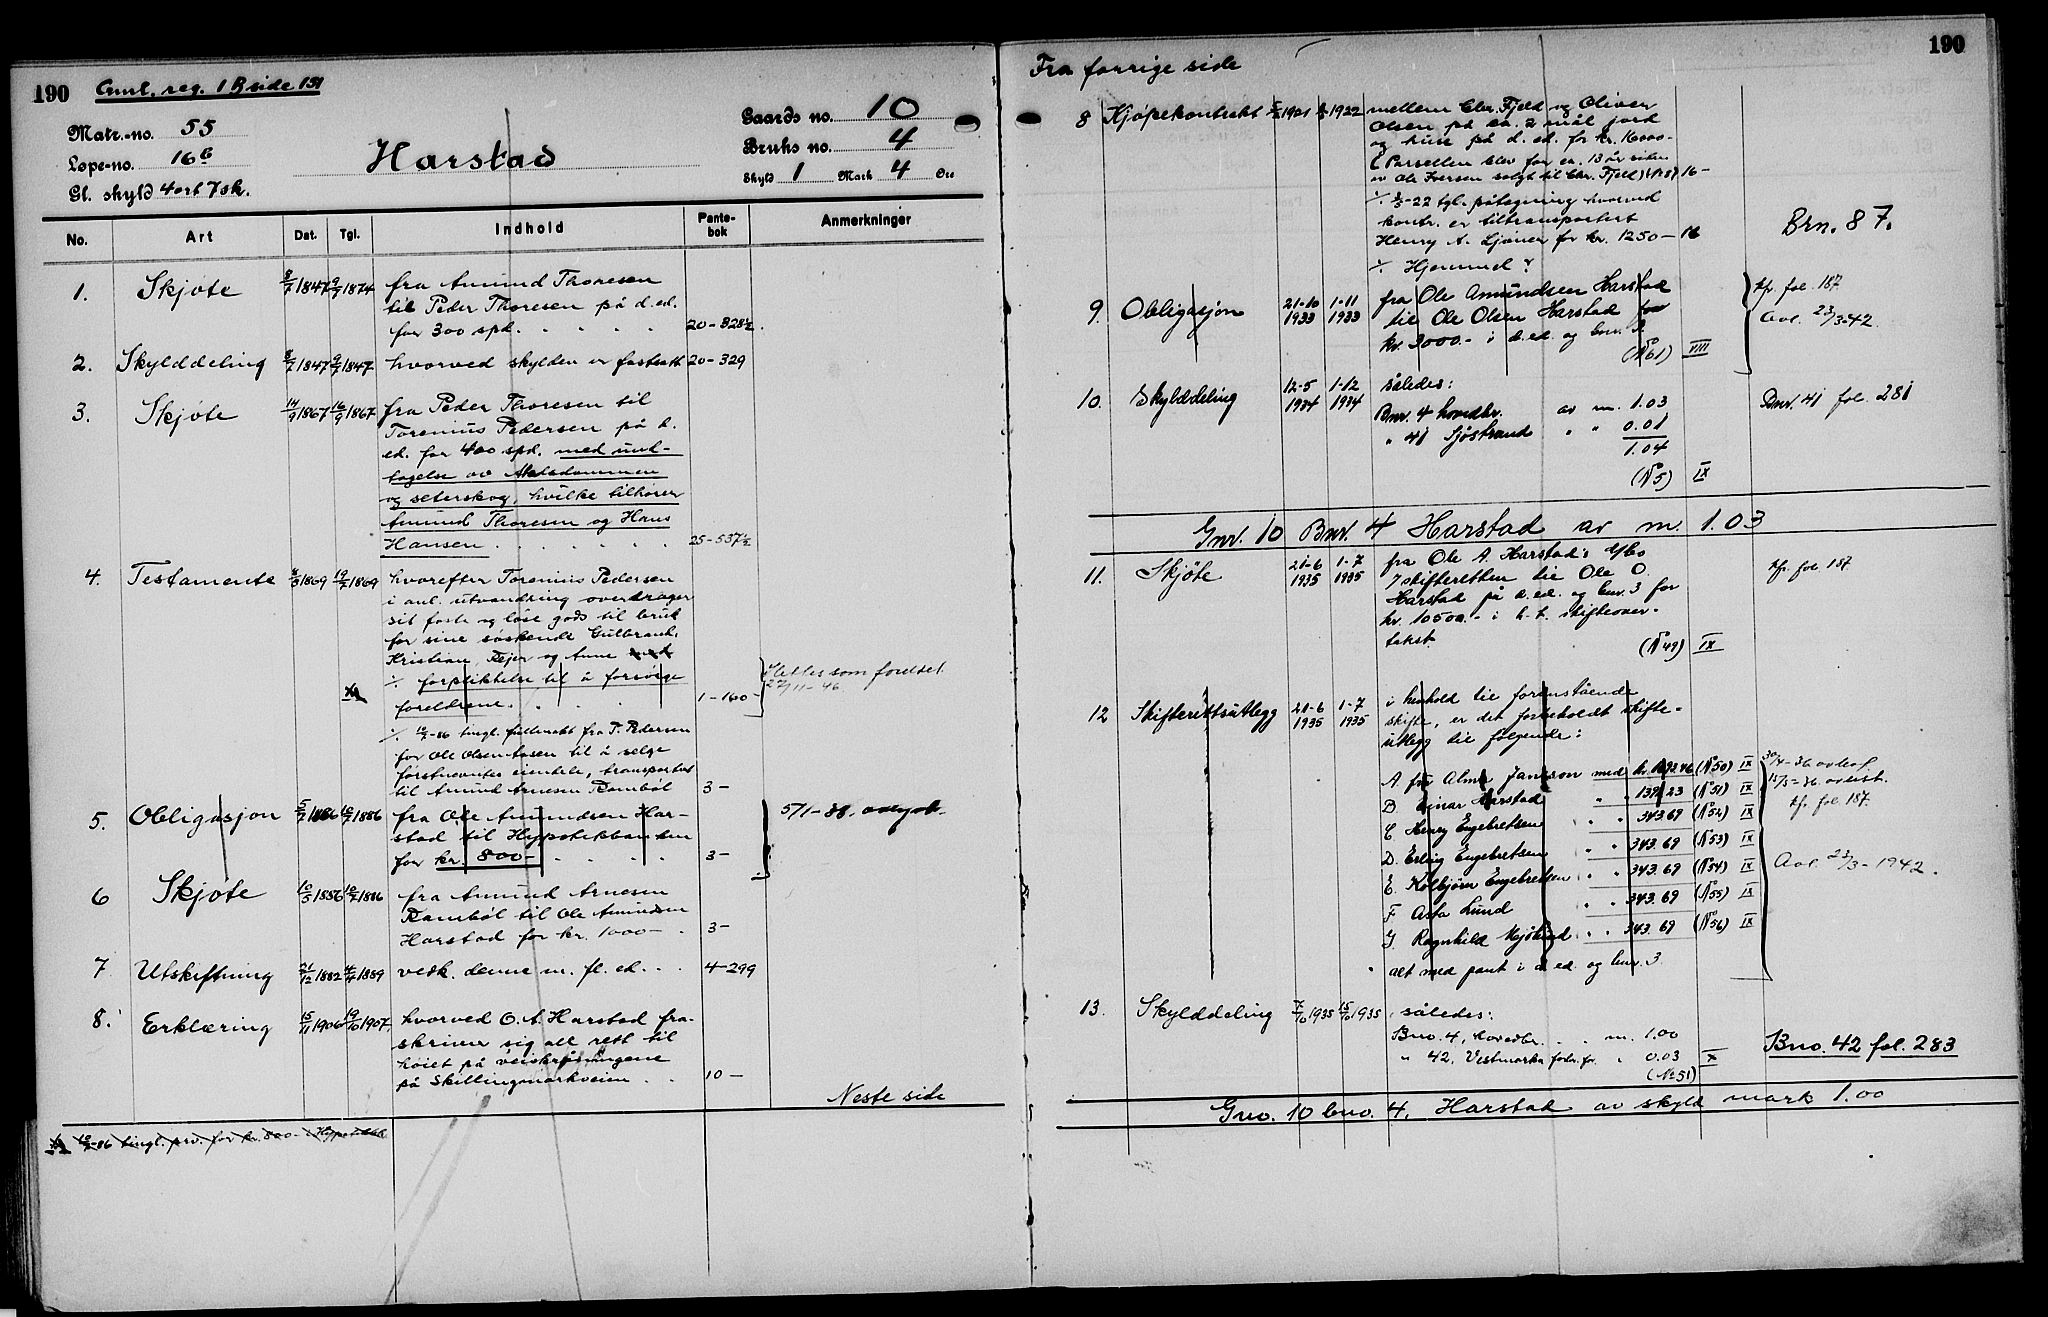 190 Gml. reg. 1 B side 151
Matr.-no. 55
Løpe-no. 16b
Gl. skyld 4 ort 7 sk.
Harstad
Gaards no. 10
Bruks no. 4
Skyld 1 Mark 4 Øre
No. Art Dat. Tgl. Indhold Pante-bok Anmerkninger
1. Skjøte 8/7 1847 9/7 1874 fra Amund Thoresen
til Peder Thoresen på d. ed.
for 300 spd. 20-328½
2. Skylddeling 8/7 1847 9/7 1847 hvorved skylden er fastsatt 20-329
3. Skjøte 14/9 1867 16/9 1867 fra Peder Thoresen til
Torenius Pedersen på d.
ed. for 400 spd. med und-
tagelse av
og seterskog, hvilke tilhører
Amund Thoresen og Hans
Hansen 25-537½
4. Testamente 1869 1869 hvorefter Torenius Pedersen
i anl. utvandring overdrager
sit faste og løse gods til bruk
for sine søskende Gulbrand,
Kristian, Reier og Anne
./. forpliktelse til å forsørge
foreldrene. 1-160 Slettes som foreldet
27/11-46.
./. -86 tingl. fullmakt fra T. Pedersen
for Ole Olsen Aasen til å selge
førstnevntes eiendele, transportert
til Amund Arnesen Rambøl 3-
5. Obligasjon 1886 1886 fra Ole Amundsen Har-
stad til Hypotekbanken
for kr. 800- 3- 5/1-38. avlyst.
6 Skjøte 1886 1886 fra Amund Arnesen
Rambøl til Ole Amundsen
Harstad for kr. 1000- 3-
7 Utskiftning 21/12 1882 1889 vedk. denne m. fl. ed. 4-299
8. Erklæring 15/11 1906 19/10 1907 hvorved O. A. Harstad fra-
skriver sig all rett til
høiet på veiskråningene
på Skillingmarkveien 10-
Neste side
-86 tingl. prv. for kr. 800- i Hypotekbk.
Fra forrige side
190
8 Kjøpekontrakt 1921 1922 mellem Chr. Fjeld og Oliver
Olsen på ca. 2 mål jord
og huse på d. ed. for kr. 16000-
(Parsellen blev for ca. 13 år siden
av Ole Iversen solgt til Chr. Fjeld) (№8) 16-
./. -22 tgl. påtegning hvorved
kontr. er tiltransportert
Henry A. Ljöner for kr. 1250- 16 Brn. 87.
./. Hjemmel?
9. Obligasjon 21-10 1933 1-11 1933 fra Ole Amundsen Harstad
til Ole Olsen Harstad for
kr. 3000.- i d. ed. og bnr. 3.
(№61) VIII tfr. fol. 187
Avl. 23/3-42.
10. Skylddeling 12-5 1934 1-12 1934 således:
Bnr. 4 hovedbr. av m. 1.03
" 41 Sjøstrand " " 0.01
1.04
(№5) IX Bnr. 41 fol. 281
Gnr. 10 Bnr. 4 Harstad av m. 1.03
11. Skjøte 21-6 1935 1-7 1935 fra Ole A. Harstad's
skifteretten til Ole O.
Harstad på d. ed. og bnr. 3 for
kr. 10500.- i h. t. skifteover-
takst. (№49) IX tfr. fol. 187
12 Skifterettsutlegg 21-6 1935 1-7 1935 i henhold til forenstående
skifte, er det forbeholdt skifte-
utlegg til følgende:
A for Alma Jansson med kr. (№50) IX
B Einar Harstad " " 139.23 (№51) IX
C Henry Engebretsen " " 343.69 (№52) IX
D. Erling Engebretsen " " 343.69 (№53) IX
E. Kolbjørn Engebretsen " " 343.69 (№54) IX
F Asta Lund " " 343.69 (№55) IX
G. Ragnhild " " 343.69 (№56) IX
alt med pant i d. ed. og bnr. 3.
-36 avlest.
15/5-36 avlest.
tfr. fol. 187.
Avl. 23/3-1942.
13. Skylddeling 7/10 1935 15/10 1935 således:
Bno. 4, hovedbr. m. 1.00
" 42, Vestmarka " 0.03 X
(№51) Bno. 42 fol. 283
Gno. 10 bno. 4. Harstad av skyld mark 1.00